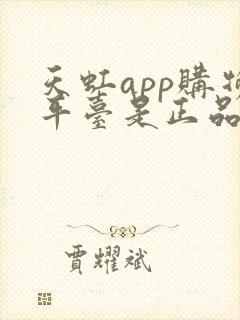 天虹app購物
平臺是正品
賈耀斌